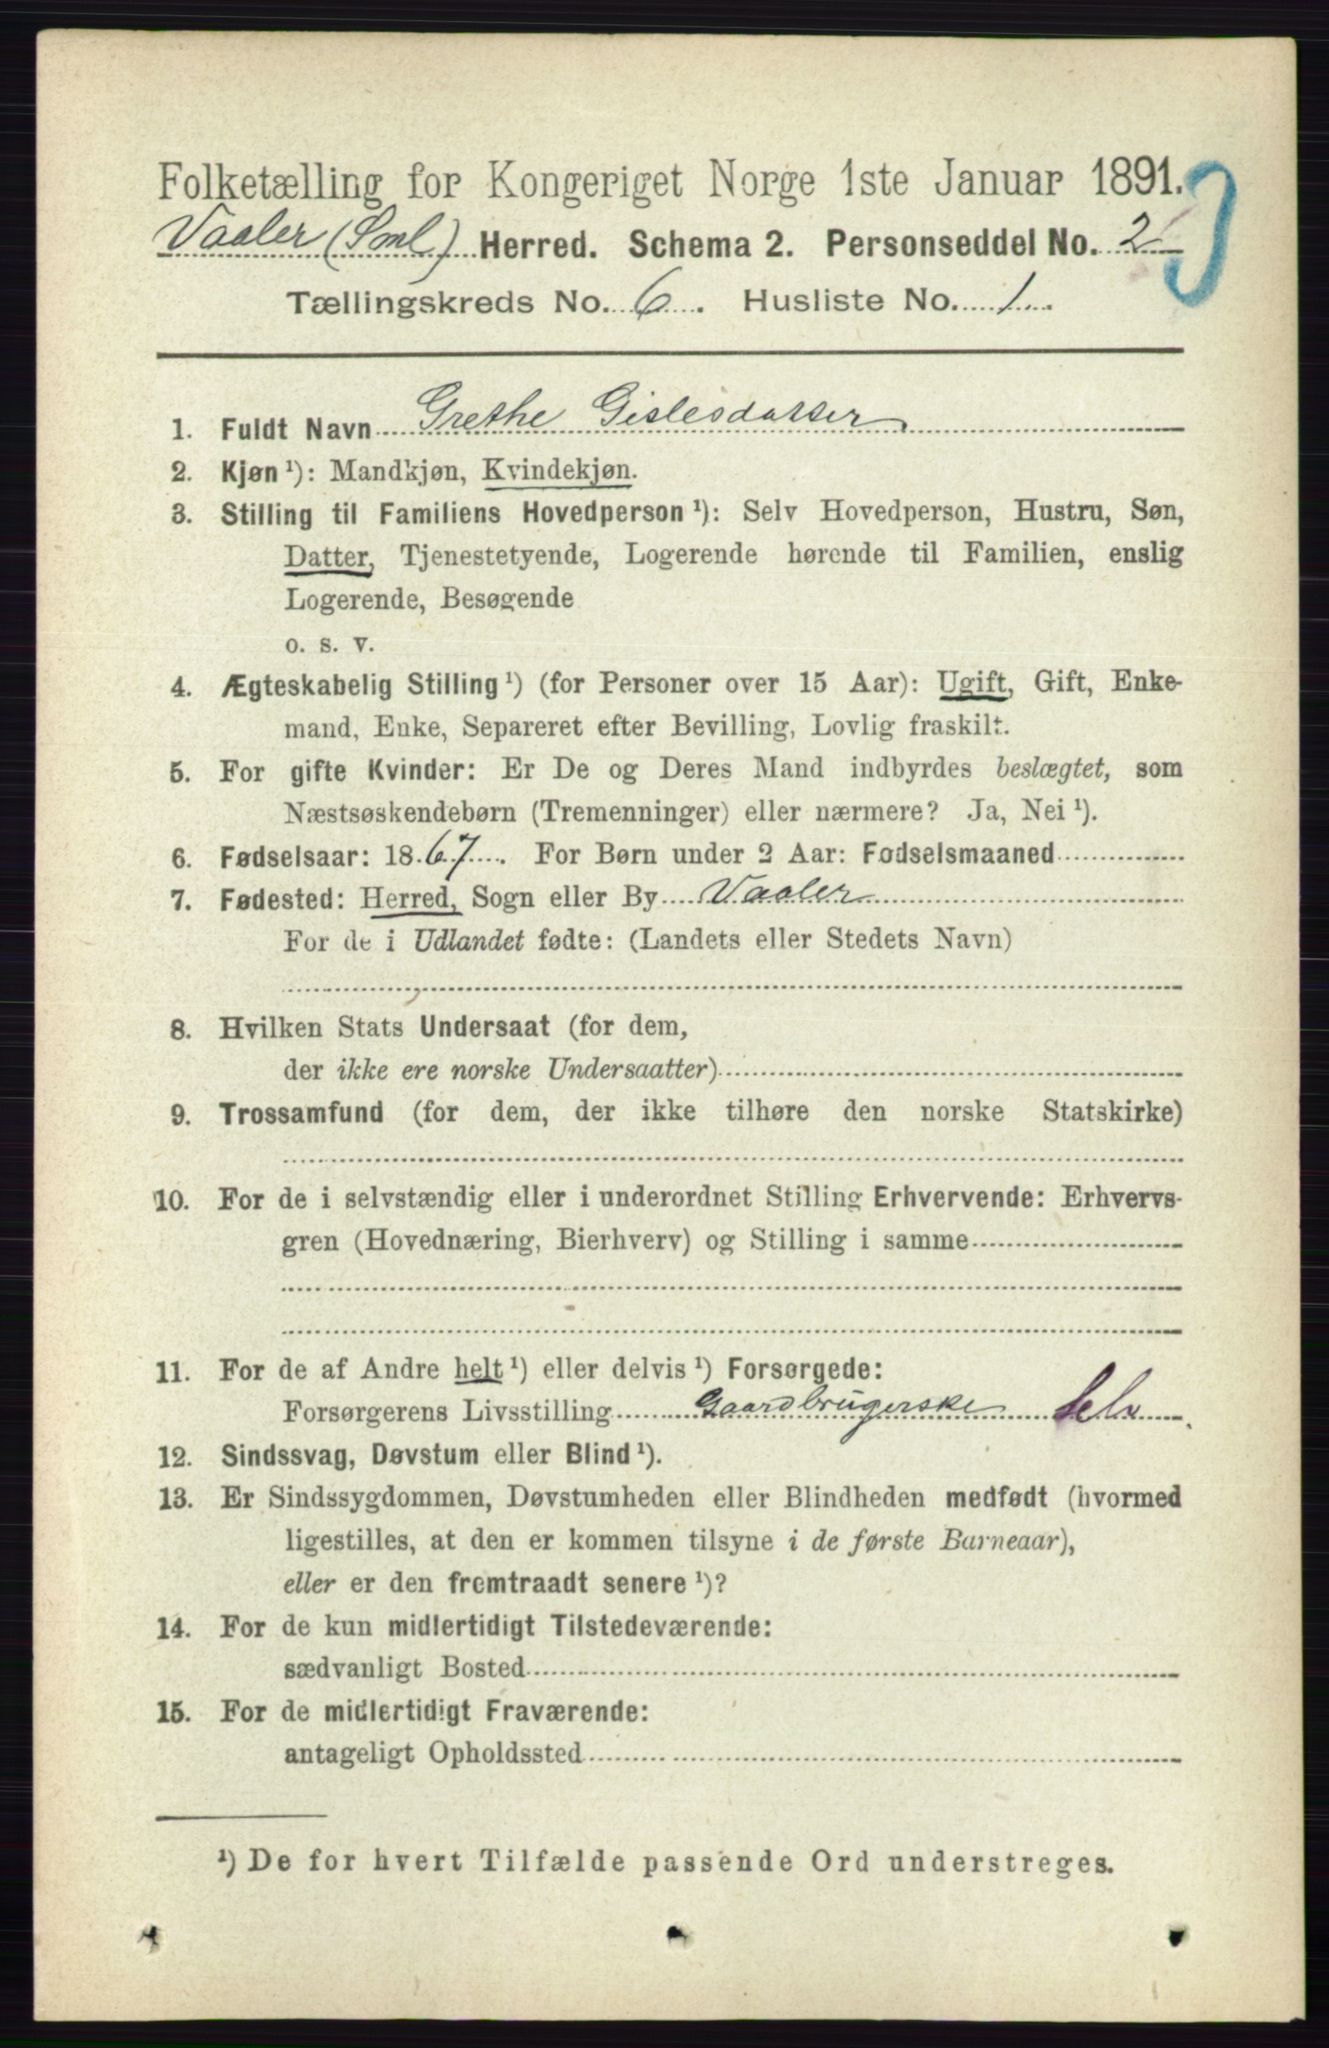 Folketælling for Kongeriget Norge 1ste Januar 1891.
Vaaler (Sml) Herred. Schema 2. Personseddel No. 2
Tællingskreds No. 6. Husliste No. 1
1. Fuldt Navn Grethe Gislesdatter
2. Kjøn ¹): Mandkjøn, Kvindekjøn.
3. Stilling til Familiens Hovedperson ¹): Selv Hovedperson, Hustru, Søn,
Datter, Tjenestetyende, Logerende hørende til Familien, enslig
Logerende, Besøgende
o. s. v.
4. Ægteskabelig Stilling ¹) (for Personer over 15 Aar): Ugift, Gift, Enke-
mand, Enke, Separeret efter Bevilling, Lovlig fraskilt.
5. For gifte Kvinder: Er De og Deres Mand indbyrdes beslægtet, som
Næstsøskendebørn (Tremenninger) eller nærmere? Ja, Nei ¹).
6. Fødselsaar: 1867. For Børn under 2 Aar: Fødselsmaaned
7. Fødested: Herred, Sogn eller By Vaaler
For de i Udlandet fødte: (Landets eller Stedets Navn)
8. Hvilken Stats Undersaat (for dem,
der ikke ere norske Undersaatter)
9. Trossamfund (for dem, der ikke tilhøre den norske Statskirke)
10. For de i selvstændig eller i underordnet Stilling Erhvervende: Erhvervs-
gren (Hovednæring, Bierhverv) og Stilling i samme
11. For de af Andre helt ¹) eller delvis ¹) Forsørgede:
Forsørgerens Livsstilling Gaardbrugerske Selv
12. Sindssvag, Døvstum eller Blind ¹).
13. Er Sindssygdommen, Døvstumheden eller Blindheden medfødt (hvormed
ligestilles, at den er kommen tilsyne i de første Barneaar),
eller er den fremtraadt senere ¹)?
14. For de kun midlertidigt Tilstedeværende:
sædvanligt Bosted
15. For de midlertidigt Fraværende:
antageligt Opholdssted
¹) De for hvert Tilfælde passende Ord understreges.